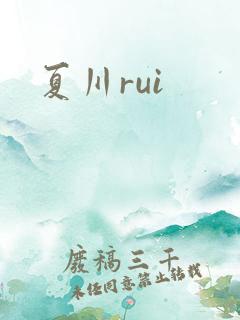 夏川rui
废稿三千
未经同意禁止转载